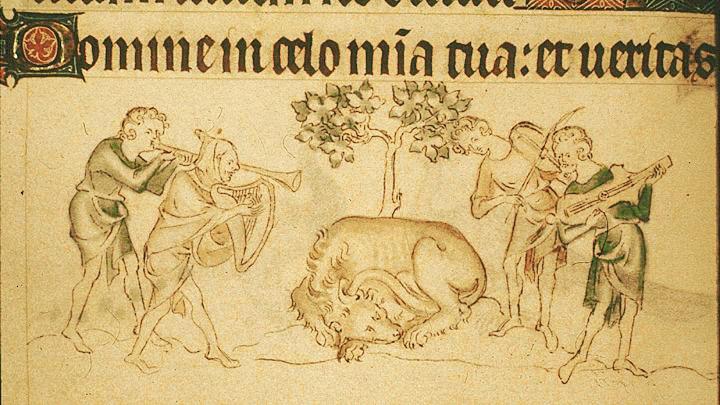 Domine in celo mīa tua: et ueritas